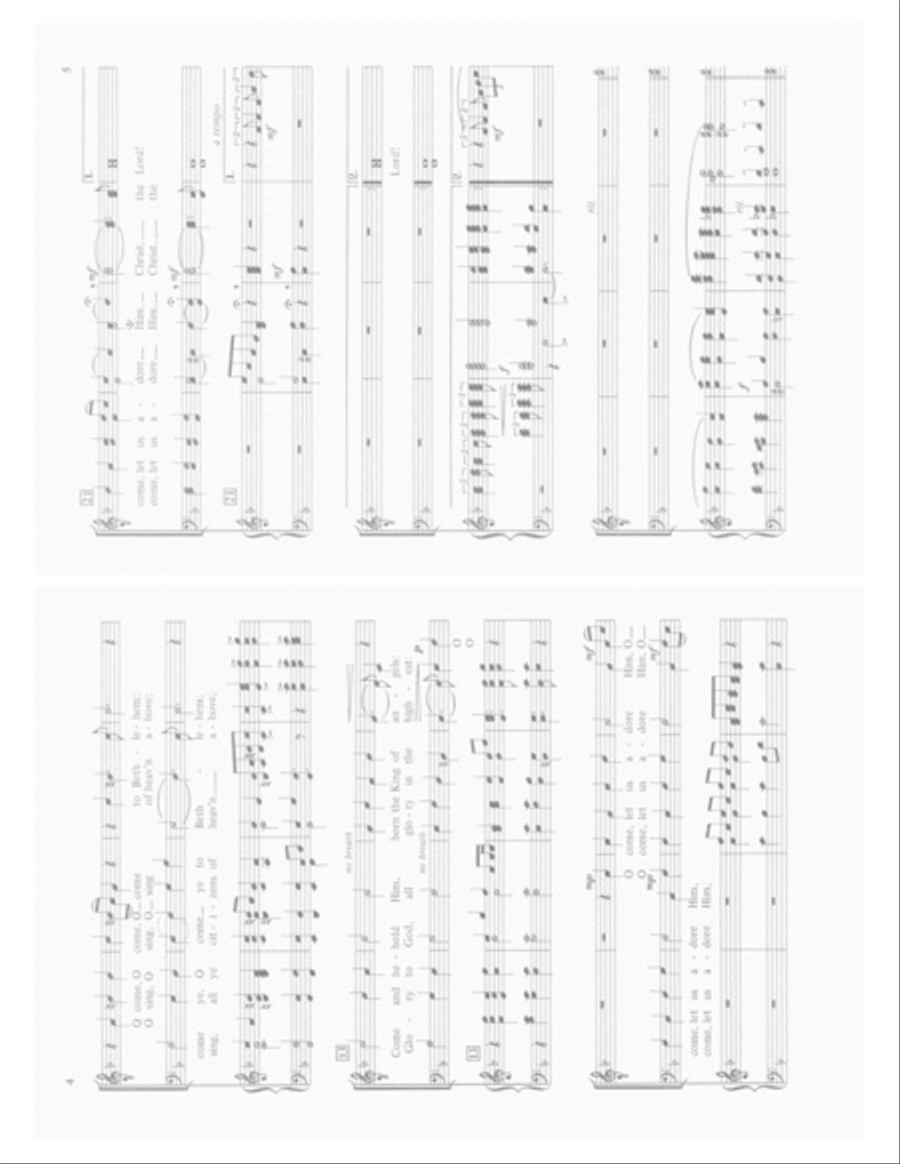 4
O come, O come, O come to Beth - le - hem;
O sing, O sing, O sing of heav'n a - bove;
come ye, O come ye to Beth - le - hem;
sing, all ye cit - i - zens of heav'n a - bove;
13
no breath
Come and be - hold Him, born the King of an - gels:
Glo - ry to God, all glo - ry in the high - est:
no breath
p
O
O
13
mp
mf
O come, let us a - dore Him, O
O come, let us a - dore Him, O
mp
mf
come, let us a - dore Him,
come, let us a - dore Him,
5
21
mf
1.
come, let us a - dore Him, Christ, the Lord!
come, let us a - dore Him, Christ, the
mf
a tempo
21
1.
mf
mf
2.
Lord!
2.
f
mf
f
rit.
f
rit.